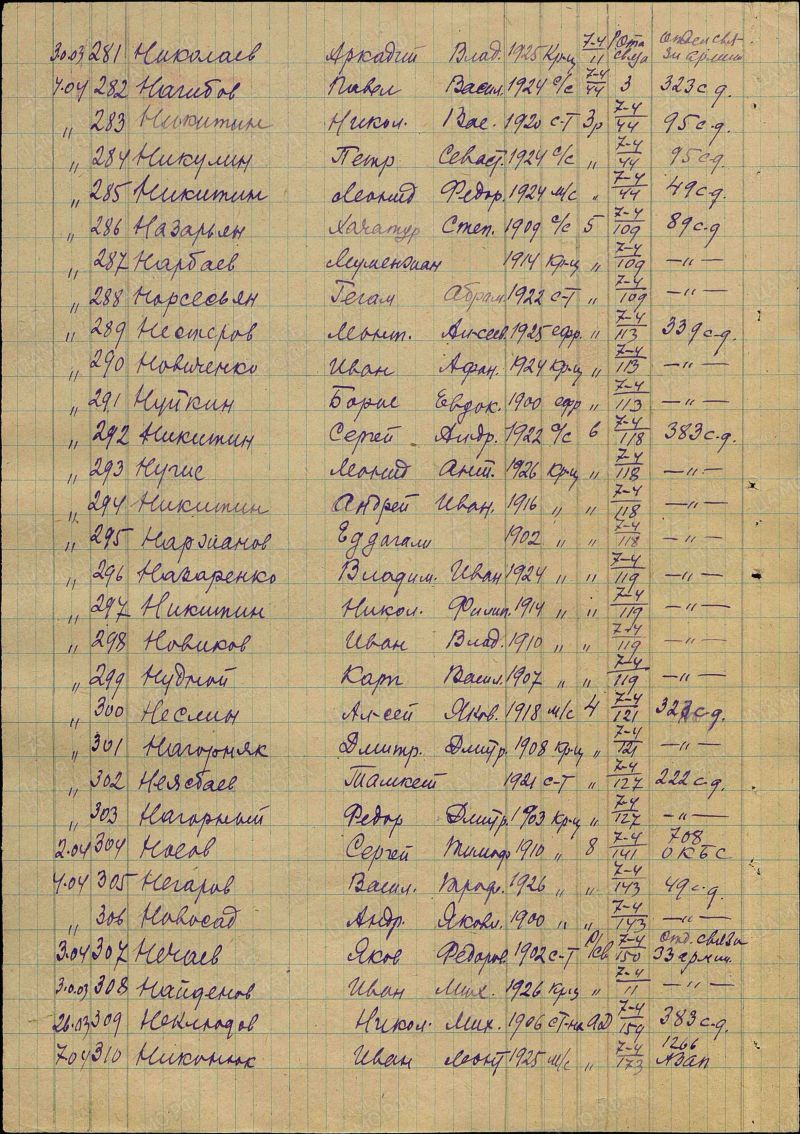 30.03 281 Николаев Аркадий Влад. 1925 Кр-ц 7-4/11 Рота связи Отдел связи армии
4.04 282 Нагибов Павел Васил. 1924 с/с 7-4/44 3 323 с.д.
„ 283 Никитин Никол. Вас. 1920 с-т 3р 7-4/44 95 с.д.
„ 284 Никулин Петр Севаст. 1924 с/с „ 7-4/44 95 с.д.
„ 285 Никитин Леонид Федор. 1924 м/с „ 7-4/44 49 с.д.
„ 286 Назарьян Хачатур Степ. 1909 с/с 5 7-4/109 89 с.д
„ 287 Нарбаев 1914 кр-ц „ 7-4/109 —„—
„ 288 Норсесьян Гегам Абрам. 1922 с-т „ 7-4/109 —„—
„ 289 Нестеров Леонт. Ал-сеев. 1925 ефр. „ 7-4/113 339 с.д.
„ 290 Новиченко Иван Афан. 1924 Кр-ц „ 7-4/113 —„—
„ 291 Нуйкин Борис Евдок. 1900 ефр „ 7-4/113 —„—
„ 292 Никитин Сергей Андр. 1922 с/с 6 7-4/118 383 с.д.
„ 293 Нугис Леонид Ант. 1926 Кр-ц „ 7-4/118 —„—
„ 294 Никитин Андрей Иван. 1916 „ „ 7-4/118 —„—
„ 295 Еддагали 1902 „ „ 7-4/118 —„—
„ 296 Назаренко Владим. Иван 1924 „ „ 7-4/119 —„—
„ 297 Никитин Никол. Филип. 1914 „ „ 7-4/119 —„—
„ 298 Новиков Иван Влад. 1910 „ „ 7-4/119 —„—
„ 299 Нудной Карп Васил. 1907 „ „ 7-4/119 —„—
„ 300 Неслин Ал-сей Яков. 1918 м/с 4 7-4/121 с.д.
„ 301 Нагорняк Дмитр. Дмитр. 1908 кр-ц „ 7-4/121 —„—
„ 302 Неясбаев Тамкет 1921 с-т „ 7-4/127 222 с.д.
„ 303 Нагорный Федор Дмитр. 1903 кр-ц „ 7-4/127 —„—
2.04 304 Носов Сергей Тимоф 1910 „ 8 7-4/141 708 ОКБС
4.04 305 Негаров Васил. Троф. 1926 „ „ 7-4/143 49 с.д.
„ 306 Новосад Андр. Яковл. 1900 „ „ 7-4/143 —„—
3.04 307 Нечаев Яков Федоров. 1902 с-т Р/св 7-4/150 Отд. связи 33 армии
30.03 308 Найденов Иван Мих. 1926 кр-ц „ 7-4/11 —„—
26.03 309 Неклюдов Никол. Мих. 1906 ст-на 7-4/159 383 с.д.
7.04 310 Никонюк Иван Леонт 1925 м/с „ 7-4/173 1266 АЗАП